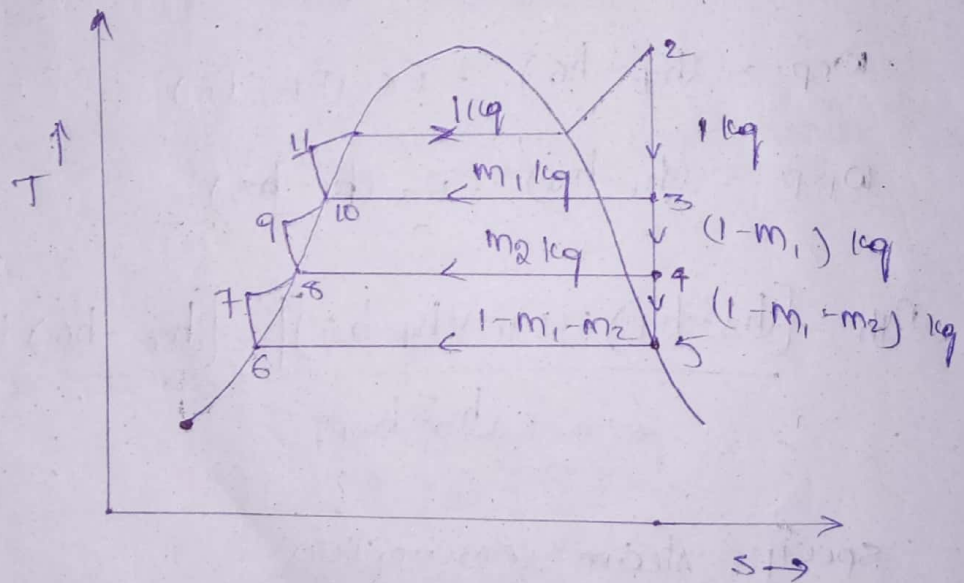 2
1 kg
1 kg
11
T
m₁ kg
3
10
9
(1-m₁) kg
m₂ kg
4
7
8
(1-m₁-m₂) kg
1-m₁-m₂
5
6
s→